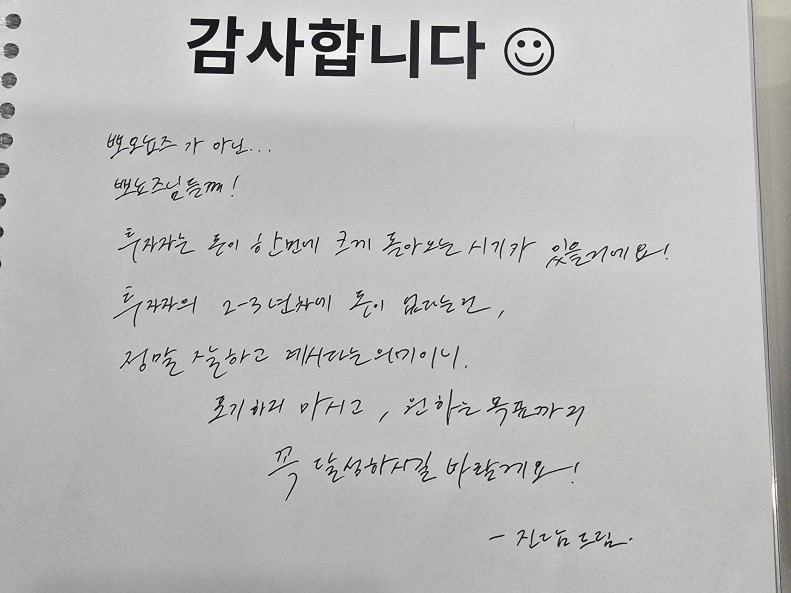 감사합니다 ☺
뽀오뇨즈가 아닌...
뽀뇨즈님들께!
투자자는 돈이 한번에 크게 돌아오는 시기가 있을거에요!
투자자의 2-3년차에 돈이 없다는건,
정말 잘하고 계시다는의미이니.
포기하지 마시고, 원하는 목표까지
꼭 달성하시길 바랄게요!
- 드림.